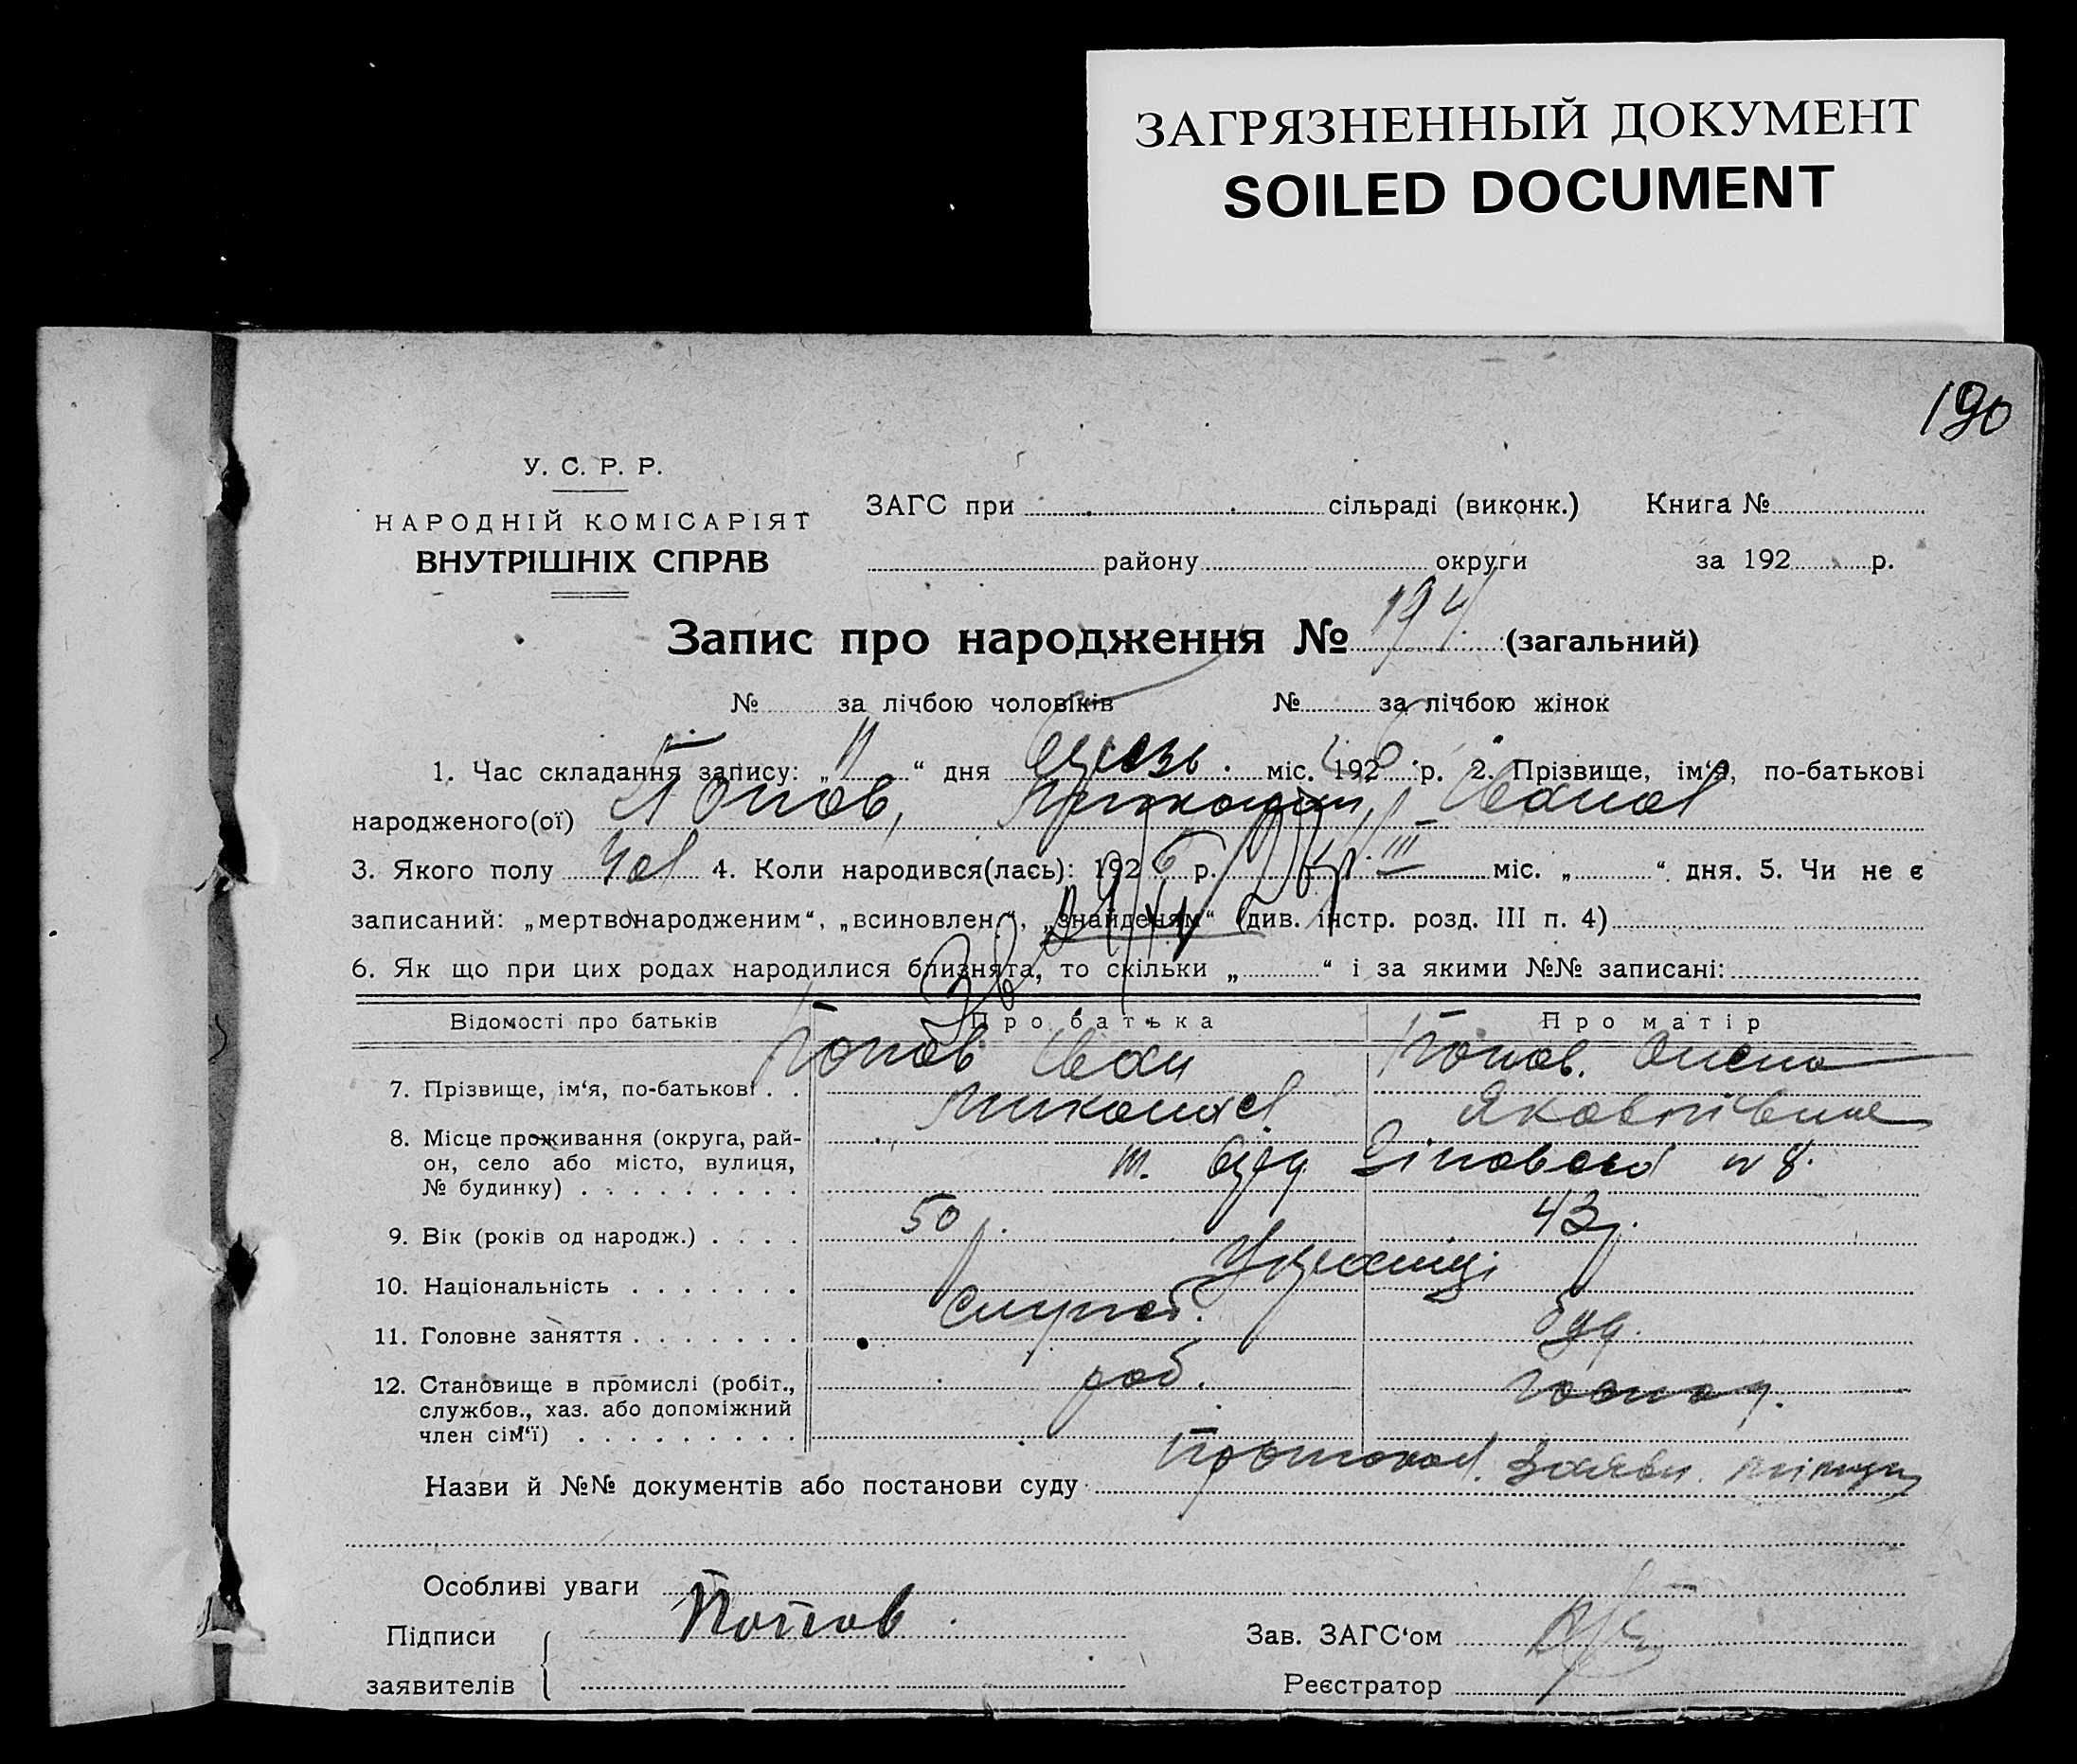 ЗАГРЯЗНЕННЫЙ ДОКУМЕНТ
SOILED DOCUMENT
190
У. С. Р. Р.
НАРОДНІЙ КОМІСАРІЯТ
ВНУТРІШНІХ СПРАВ
ЗАГС при сільраді (виконк.) Книга №
району округи за 192 р.
Запис про народження № 194 (загальний)
№ за лічбою чоловіків № за лічбою жінок
1. Час складання запису: „11“ дня міс. 1926 р. 2. Прізвище, ім‘я, по-батькові
народженого(ої) Попов,
3. Якого полу чол 4. Коли народився(лась): 1926 р. міс. „ “ дня. 5. Чи не є
записаний: „мертвонародженим“, „всиновлен.“, „знайденям“ (див. інстр. розд. III п. 4)
6. Як що при цих родах народилися близнята, то скільки „ “ і за якими №№ записані:
Відомості про батьків Про батька Про матір
7. Прізвище, ім‘я, по-батькові . . Попов Іван Попов. Олена
Миколаєв Яковлівна
8. Місце проживання (округа, рай-
он, село або місто, вулиця,
№ будинку) . . . . . . . . . № 8.
9. Вік (років од народж.) . . . . 50 р. 43 р.
10. Національність . . . . . . . Українці
11. Головне заняття . . . . . . . служб.
12. Становище в промислі (робіт.,
службов., хаз. або допоміжний
член сім‘ї) . . . . . . . . . роб. господ.
Назви й №№ документів або постанови суду Протокол. Заяви.
Особливі уваги
Підписи Попов Зав. ЗАГС‘ом
заявителів Реєстратор